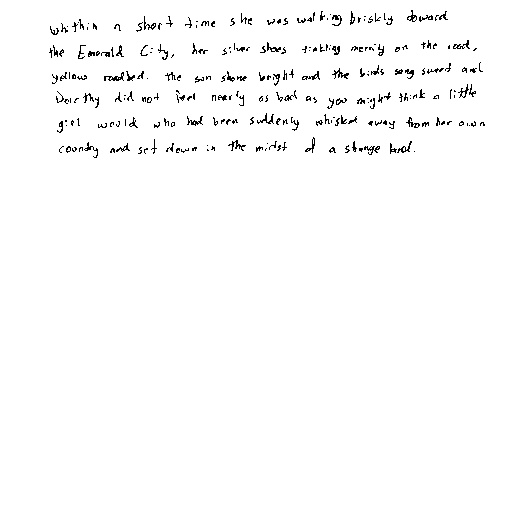 Whithin a short time she was walking briskly doward
the Emerald City, her silver shoes tinkling merrily on the road,
yellow roadbed. The sun shone bright and the birds song sweet and
Dorothy did not feel nearly as bad as you might think a little
girl would who had been suddenly whisked away from her own
country and set down in the midst of a strange land.